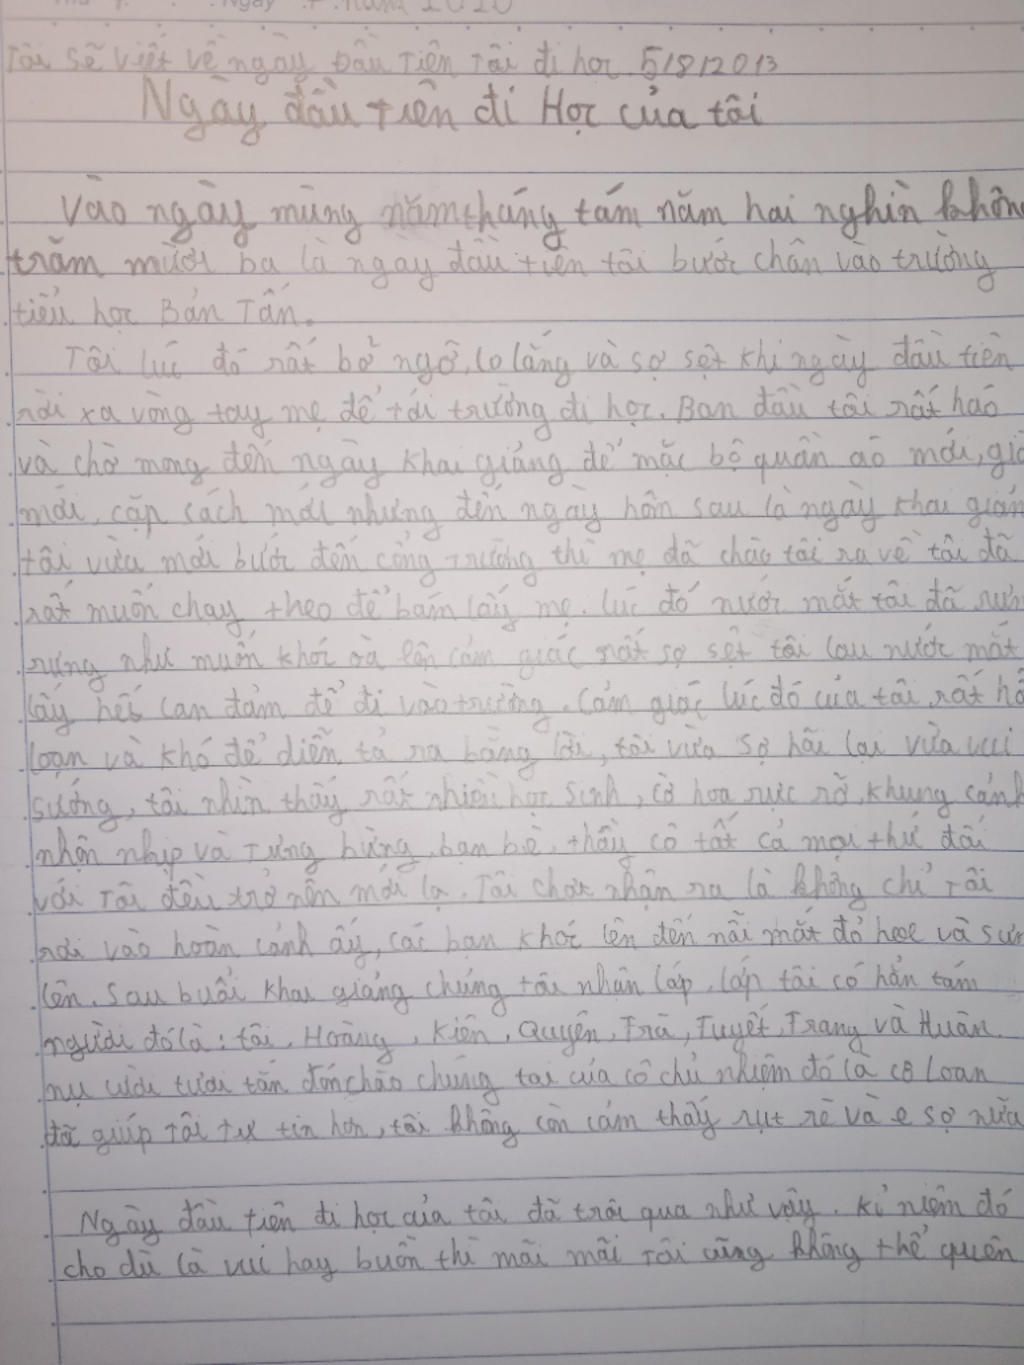 Ngày năm 2020
Tôi sẽ viết về ngày Đầu Tiên Tôi đi học 5/8/2013
Ngày đầu tiên đi Học của tôi
Vào ngày mùng năm tháng tám năm hai nghìn không
trăm mười ba là ngày đầu tiên tôi bước chân vào trường
tiểu học Bản Tấn.
Tôi lúc đó rất bở ngỡ, lo lắng và sợ sệt khi ngày đầu tiên
rời xa vòng tay mẹ để tới trường đi học. Ban đầu tôi rất háo
và chờ mong đến ngày khai giảng để mặc bộ quần áo mới, già
mới, cặp sách mới nhưng đến ngày hôm sau là ngày khai giản
tôi vừa mới bước đến cổng trường thì mẹ đã chào tôi ra về tôi đã
rất muốn chạy theo để bám lấy mẹ. lúc đó nước mắt tôi đã rưn
rưng như muốn khóc cảm giác rất sợ sệt tôi lau nước mắt
lấy hết can đảm để đi vào trường. Cảm giác lúc đó của tôi rất hỗ
loạn và khó để diễn tả ra bằng lời, tôi vừa sợ hãi lại vừa vui
sướng, tôi nhìn thấy rất nhiều học sinh, cờ hoa rực rỡ, khung cảnh
nhộn nhịp và Tưng bừng, bạn bè, thầy cô tất cả mọi thứ đối
với Tôi đều trở nên mới lạ. Tôi chợt nhận ra là không chỉ Tôi
rơi vào hoàn cảnh ấy, các bạn khóc lên đến nỗi mắt đỏ hoe và sưn
lên. Sau buổi khai giảng chúng tôi nhận lớp, lớp tôi có hẳn tám
người đó là: tôi, Hoàng, Kiên, Quyên, Trà, Tuyết, Trang và Huân.
nụ cười tươi tắn đón chào chúng tai của cô chủ nhiệm đó là cô Loan
đã giúp Tôi tự tin hơn, tôi không còn cảm thấy rụt rè và e sợ nữa
Ngày đầu tiên đi học của tôi đã trôi qua như vậy. Kỉ niệm đó
cho dù là vui hay buồn thì mãi mãi Tôi cũng không thể quên